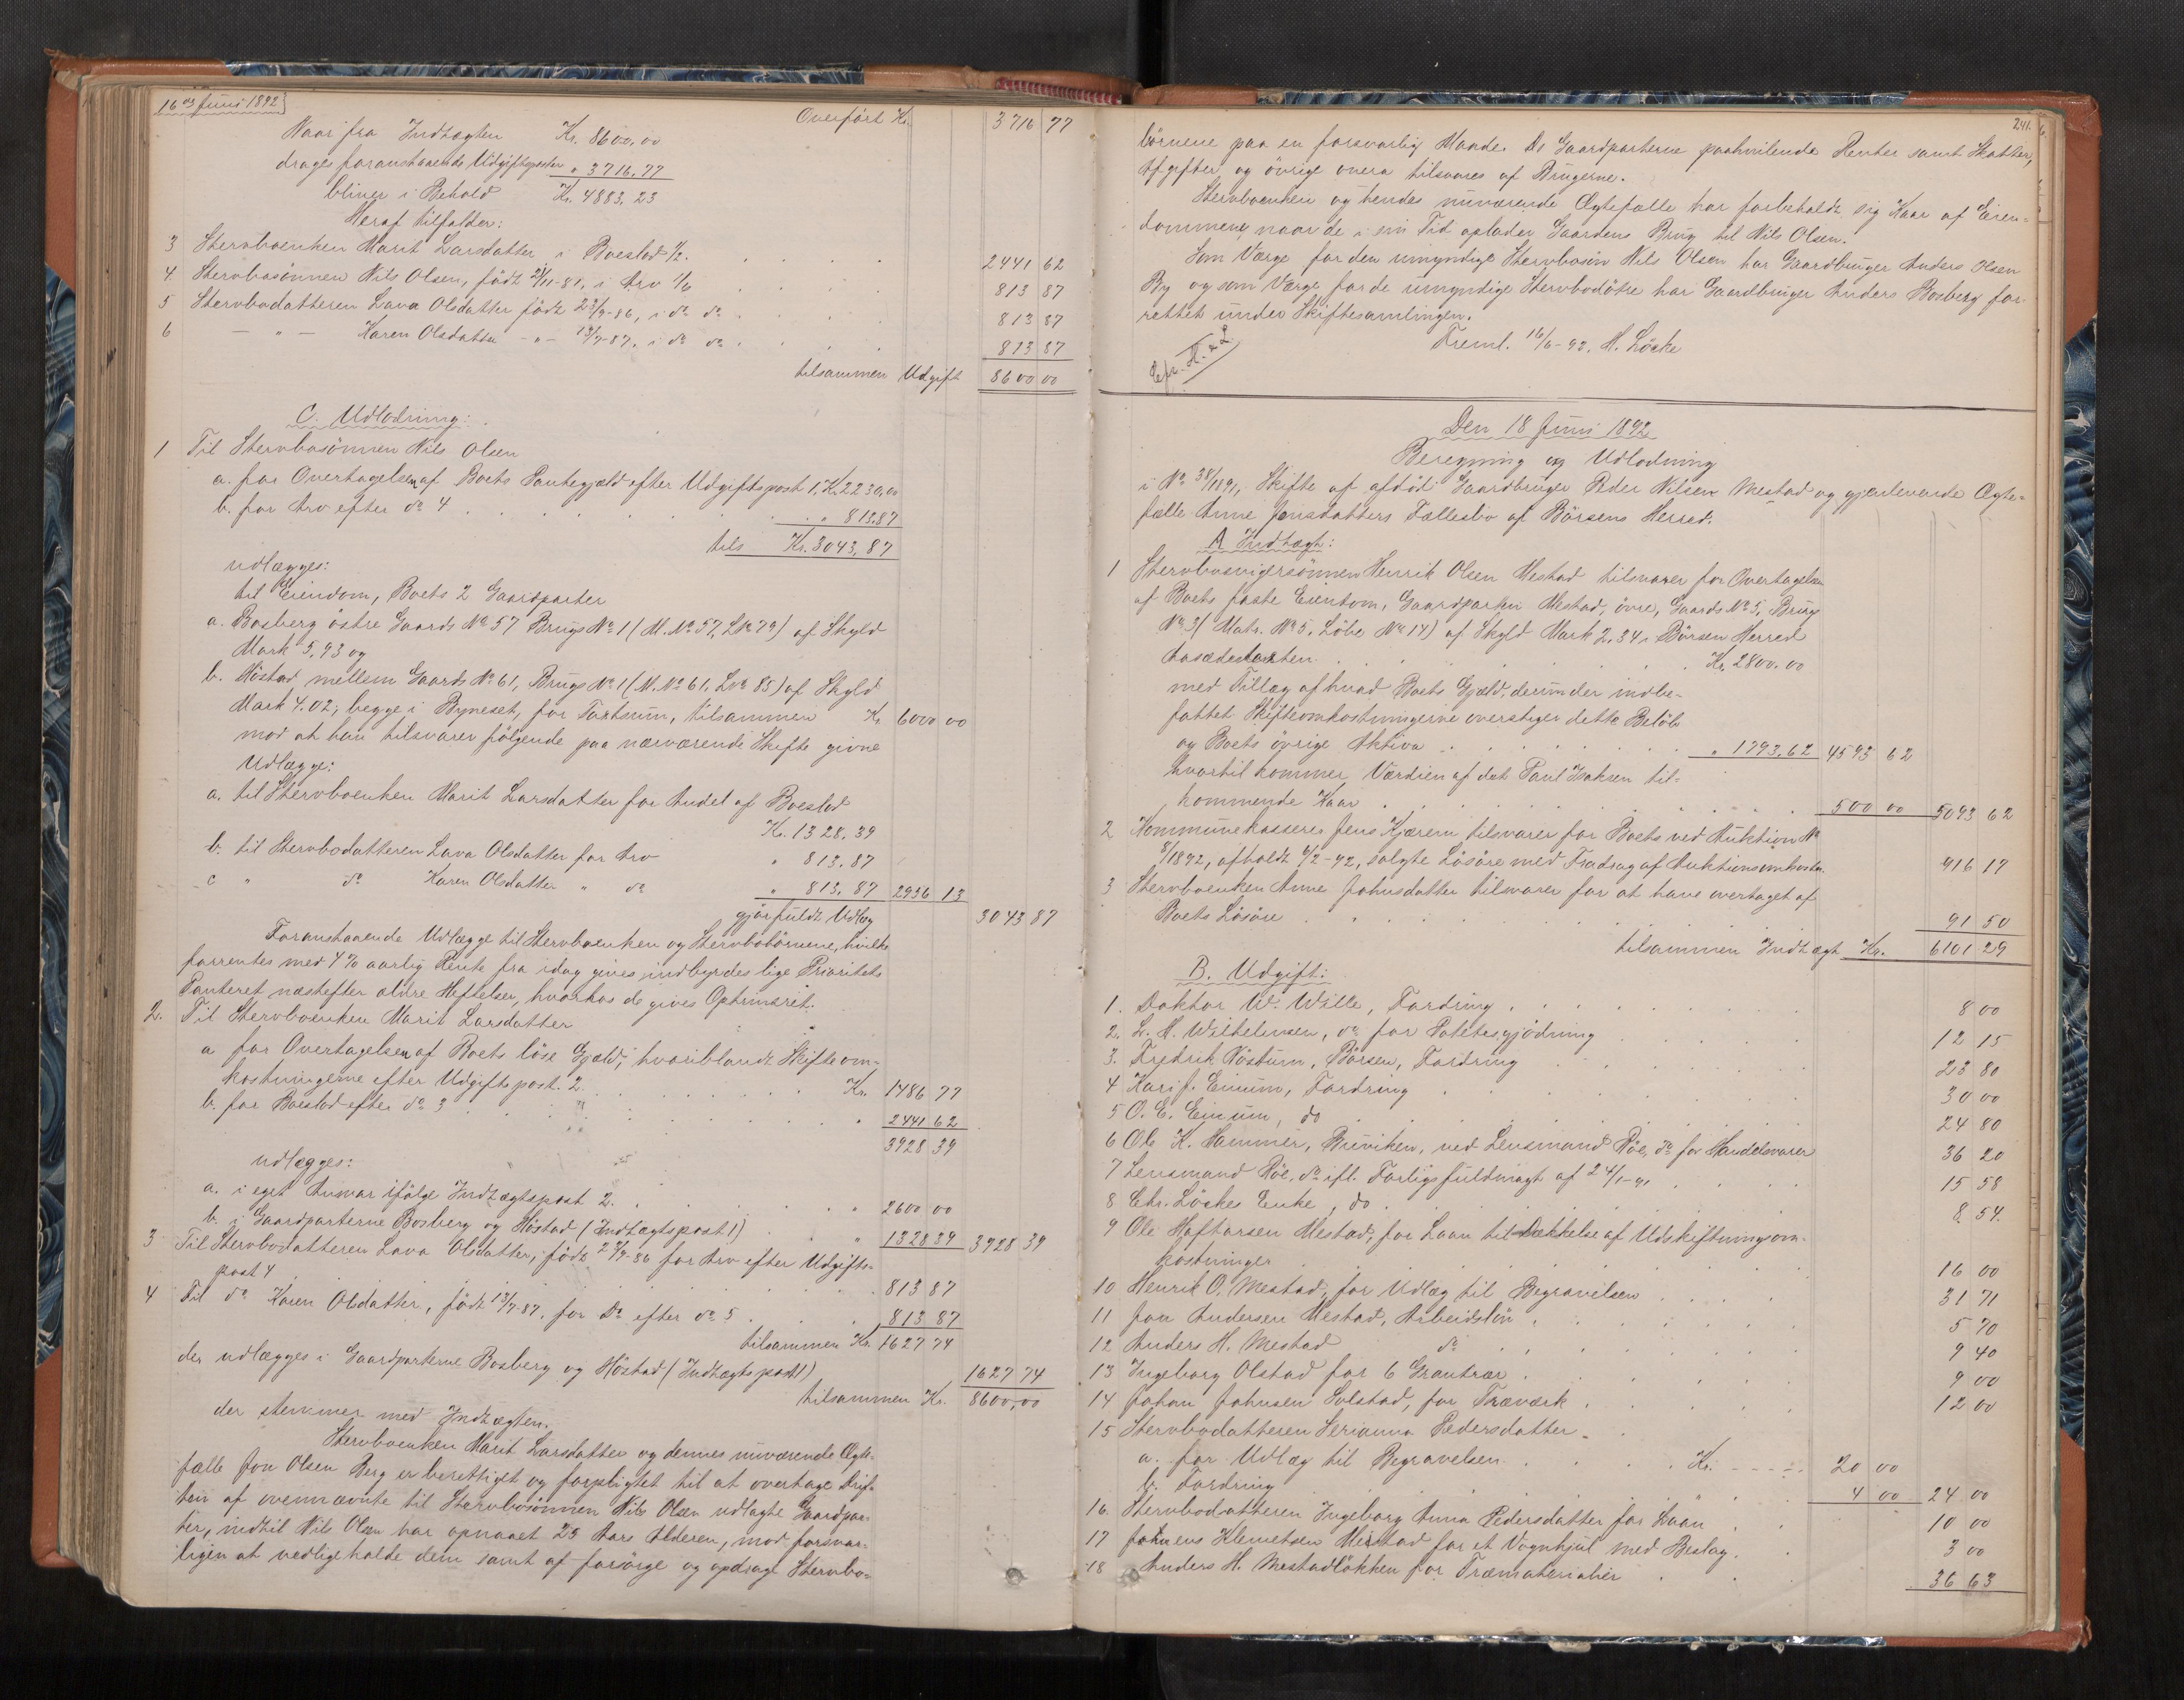 16de Juni 1892
Overført Kr. 3716 77
Naar fra Indtægten Kr. 8600,00
drages foranstaaende Udgiftsposter " 3716,77
bliver i Behold Kr. 4883,23
Heraf tilfalder:
3 Stervboenken Marit Larsdatter i Boeslod 1/2. 2441 62
4 Stervbosønnen Nils Olsen, født 21/11-81, i Arv 1/6 813 87
5 Stervbodatteren Lava Olsdatter født 23/9-86, i do do 813 87
6 — " — Karen Olsdatter - " - 13/7-87, i do do 813 87
tilsammen Udgift 8600 00
C. Udlodning:
1 Til Stervbosønnen Nils Olsen
a. for Overtagelsen af Boets Pantegjæld efter Udgiftspost 1, Kr. 2230,00
b. for Arv efter do 4 " 813,87
tils Kr. 3043,87
udlægges:
til Eiendom, Boets 2 Gaardparter
a. Bosberg østre Gaards No 57 Brugs No 1 (M. No 57, LNo 79) af Skyld
Mark 5,93 og
b. Høstad mellem Gaards No 61, Brugs No 1 (M. No 61, LNo 85) af Skyld
Mark 4.02, begge i Byneset, for Taxtsum, tilsammen Kr. 6000 00
mod at han tilsvarer følgende paa nærværende Skifte givne
Udlægge:
a. til Stervboenken Marit Larsdatter for Andel af Boeslod
Kr. 1328,39
b. til Stervbodatteren Lava Olsdatter for Arv " 813,87
c " do Karen Olsdatter " do " 813,87 2956 13
gjør fuldt Udlæg 3043 87
Foranstaaende Udlægge til Stervboenken og Stervbobørnene, hvilke
forrentes med 4% aarlig Rente fra idag gives indbyrdes lige Prioritets
Panteret næstefter ældre Heftelser, hvorhos de gives Optrinsret.
2. Til Stervboenken Marit Larsdatter
a for Overtagelsen af Boets løse Gjæld, hvoriblandt Skifteom-
kostningerne efter Udgiftspost 2 Kr. 1486 77
b. for Boeslod efter do 3 " 2441 62
3928 39
udlægges:
a. i eget Ansvar ifølge Indtægtspost 2. " 2600 00
b. i Gaardparterne Bosberg og Høstad (Indtægtspost 1) " 1328 39 3928 39
3 Til Stervbodatteren Lava Olsdatter, født 23/9-86 for Arv efter Udgifts-
post 4 813 87
4 Til do Karen Olsdatter, født 13/7-87, for Do efter do 5 813 87
tilsammen Kr. 1627 74
der udlægges i Gaardparterne Bosberg og Høstad (Indtægtspost 1) 1627 74
tilsammen Kr. 8600,00
der stemmer med Indtægten.
Stervboenken Marit Larsdatter og dennes nuværende Ægte-
fælle Jon Olsen Berg er berettiget og forpligtet til at overtage Drif-
ten af ovennævnte til Stervbosønnen Nils Olsen udlagte Gaardpar-
ter, indtil Nils Olsen har opnaaet 25 Aars Alderen, mod forsvar-
ligen at vedligeholde dem samt af forsørge og opdrage Stervbo-
241.
børnene paa en forsvarlig Maade. De Gaardparterne paahvilende Renter samt Skatter,
Afgifter og øvrige onera tilsvares af Brugerne.
Stervboenken og hendes nuværende Ægtefælle har forbeholdt sig Kaar af Eien-
dommene, naar de i sin Tid oplader Gaardens Brug til Nils Olsen.
Som Værge for den umyndige Stervbosøn Nils Olsen har Gaardbruger Anders Olsen
By og som Værge for de umyndige Stervbodøtre har Gaardbruger Anders Bosberg for-
rettet under Skiftesamlingen.
Freml. 16/6-92. H. Løcke
Den 18 Juni 1892
Beregning og Udlodning
i No 38/1891, Skifte af afdød Gaardbruger Peder Nilsen Mestad og gjenlevende Ægte-
fælle Anne Jonsdatters Fællesbo af Børsens Herred.
A Indtægt:
1 Stervbosvigersønnen Henrik Olsen Mestad tilsvarer for Overtagelsen
af Boets faste Eiendom, Gaardparten Mestad, øvre, Gaards No 5, Brugs
No 3 (Matr. No 5, Løbe No 14) af Skyld Mark 2,34 i Børsen Herred
Aasædestaxten Kr. 2800.00
med Tillæg af hvad Boets Gjæld, derunder indbe-
fattet Skifteomkostningerne overstiger dette Beløb
og Boets øvrige Aktiva " 1793.62 4593 62
hvortil kommer Værdien af det Paul Isaksen til-
kommende Kaar 500 00 5093 62
2 Kommunekasserer Jens Kjærem tilsvarer for Boets ved Auktion No
8/1892, afholdt 4/2-92, solgte Løsøre med Fradrag af Auktionsomkostn. 916 17
3 Stervboenken Anne Johnsdatter tilsvarer for at have overtaget af
Boets Løsøre 91 50
tilsammen Indtægt Kr. 6101 29
B. Udgift:
1. Doktor W. Wille, Fordring 8 00
2. L. H. Wilhelmsen, do for Potetesgjødning 12 15
3. Fredrik Røstum, Børsen, Fordring 23 80
4 Kari J. Einum, Fordring 30 00
5 O. E. Einum, do 24 80
6 Ole K. Hammer, Buviken, ved Lensmand Røe, do for Handelsvarer 36 20
7 Lensmand Røe, do ifl. Forligsfuldmagt af 24/1-91 15 58
8 Chr. Løckes Enke, do 8 54.
9 Ole Haftorsen Mestad, for Laan til Dækkelse af Udskiftningsom-
kostninger 16 00
10 Henrik O. Mestad, for Udlæg til Begravelsen 31 71
11 Jon Andersen Mestad, Arbeidsløn 5 70
12 Anders H. Mestad do 9 40
13 Ingeborg Olstad for 6 Grantrær 9 00
14 Johan Johnsen Solstad, for Træværk 12 00
15 Stervbodatteren Serianna Pedersdatter
a. for Udlæg til Begravelsen Kr. 20 00
b. Fordring " 4 00 24 00
16. Stervbodatteren Ingeborg Anna Pedersdatter for Laan 10 00
17 Johans Klemetsen Mestad for et Vognhjul med Beslag. 3 00
18 Anders H. Mestadløkken for Træmaterialier 36 63